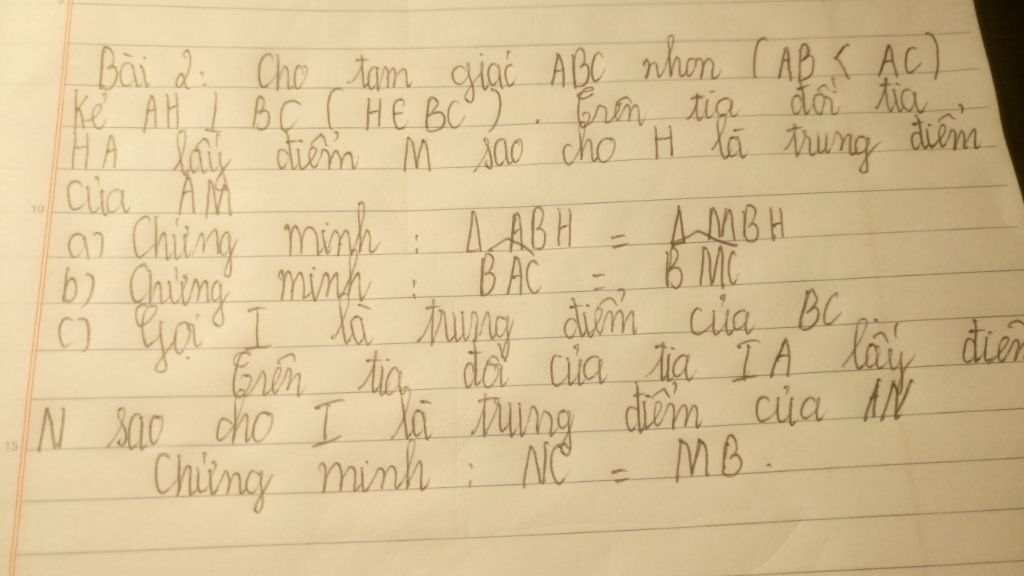 Bài 2: Cho tam giác ABC nhọn (AB < AC)
Kẻ AH ⊥ BC (H∈BC). Trên tia đối tia
HA lấy điểm M sao cho H là trung điểm
của AM
10
a) Chứng minh: Δ ABH = Δ MBH
b) Chứng minh: BAC = BMC
c) Gọi I là trung điểm của BC
Trên tia đối của tia IA lấy điểm
N sao cho I là trung điểm của AN
15
Chứng minh: NC = MB.